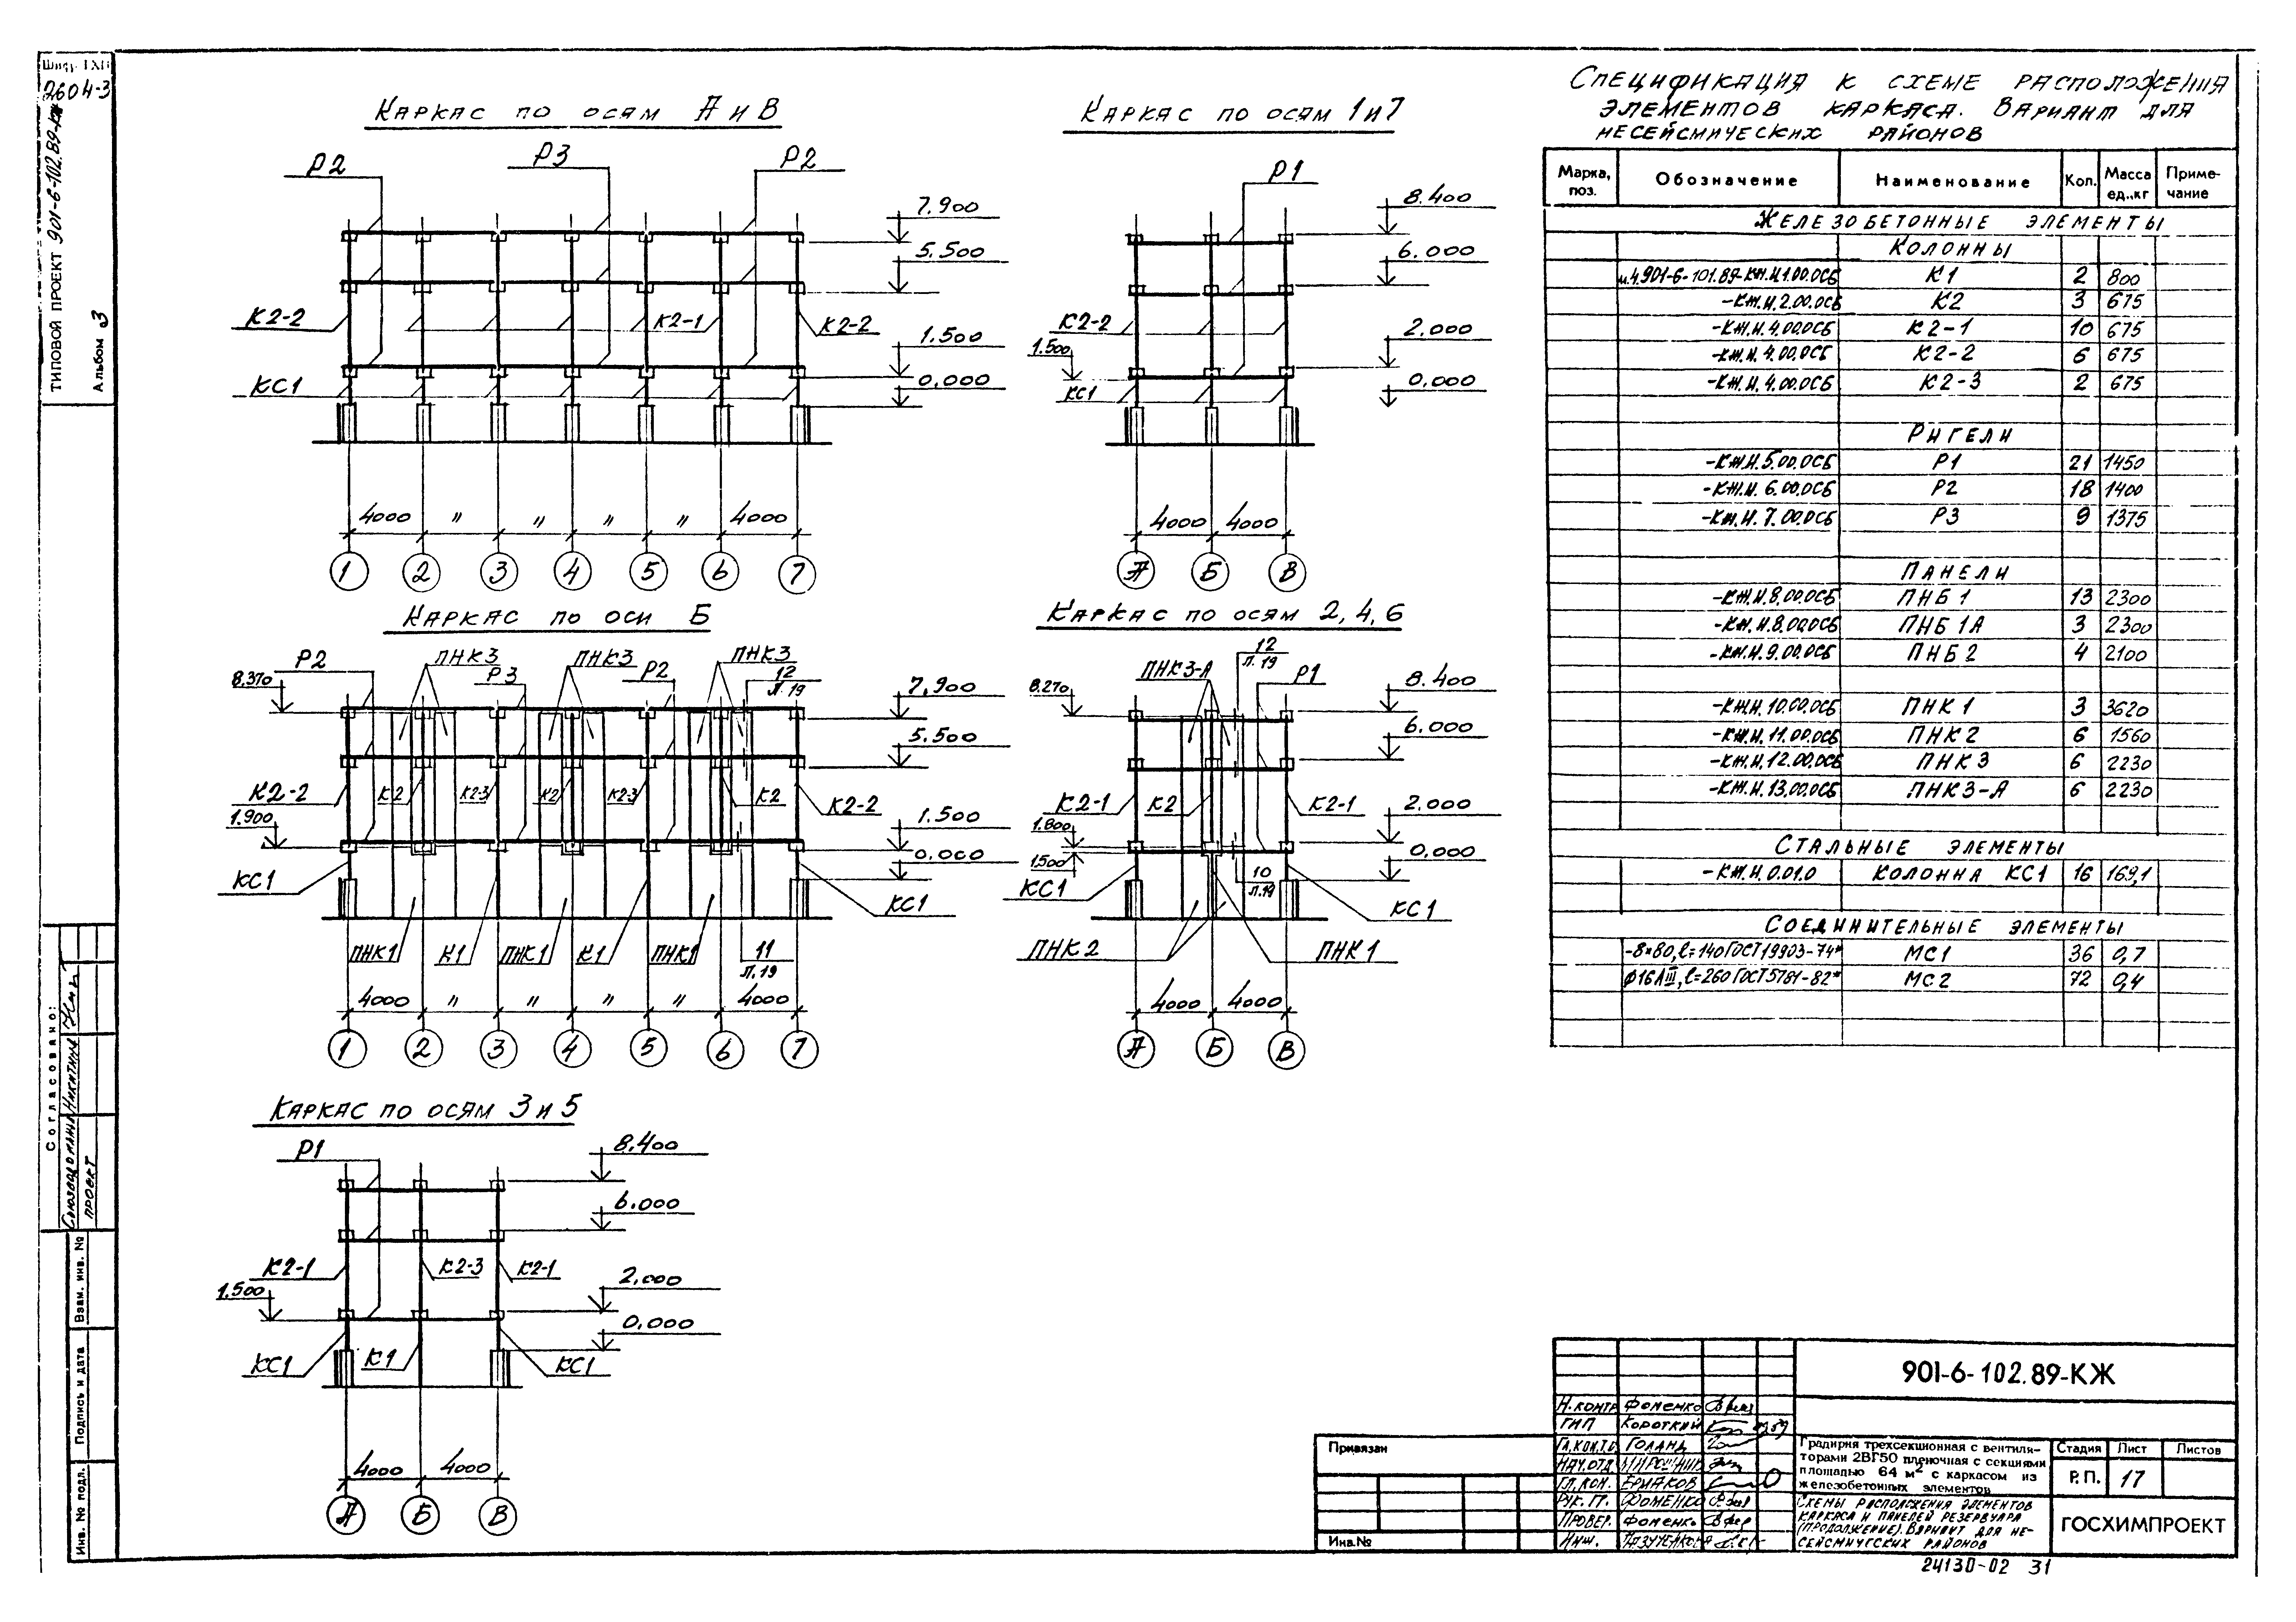 Шифр ГХП
2604-3
ТИПОВОЙ ПРОЕКТ 901-6-102.89-КЖ
Альбом 3
Согласовано:
Союзводоканал
проект
Никитина
Взам. инв. №
Подпись и дата
Инв. № подл.
Каркас по осям А и В
Р2
Р3
Р2
7.900
5.500
К2-2
К2-1
К2-2
1.500
КС1
0.000
4000 " " " " 4000
1 2 3 4 5 6 7
Каркас по осям 1 и 7
Р1
8.400
6.000
К2-2
2.000
1.500
КС1
0.000
4000 4000
А Б В
Каркас по оси Б
Р2
ПНК3
Р3
ПНК3
Р2
ПНК3
12
Л.19
8.370
7.900
5.500
К2-2
К2
К2-3
К2
К2-3
К2
К2-2
1.900
1.500
0.000
КС1
КС1
ПНК1
К1
ПНК1
К1
ПНК1
11
Л.19
4000 " " " " 4000
1 2 3 4 5 6 7
Каркас по осям 2, 4, 6
ПНК3-А
12
Л.19
Р1
8.270
8.400
6.000
К2-1
К2
К2-1
2.000
1.800
1.500
0.000
КС1
10
Л.19
КС1
ПНК 2
ПНК 1
4000 4000
А Б В
Каркас по осям 3 и 5
Р1
8.400
6.000
К2-1
К2-3
К2-1
1.500
2.000
0.000
КС1
К1
КС1
4000 4000
А Б В
Спецификация к схеме расположения
элементов каркаса. Вариант для
несейсмических районов
Марка, поз. Обозначение Наименование Кол. Масса ед.,кг Приме-чание
Железобетонные элементы
Колонны
ц.4.901-6-101.89-КЖ.И.1.00.0СБ К1 2 800
-КЖ.И.2.00.0СБ К2 3 675
-КЖ.И.4.00.0СБ К2-1 10 675
-КЖ.И.4.00.0СБ К2-2 6 675
-КЖ.И.4.00.0СБ К2-3 2 675
Ригели
-КЖ.И.5.00.0СБ Р1 21 1450
-КЖ.И.6.00.0СБ Р2 18 1400
-КЖ.И.7.00.0СБ Р3 9 1375
Панели
-КЖ.И.8.00.0СБ ПНБ 1 13 2300
-КЖ.И.8.00.0СБ ПНБ 1А 3 2300
-КЖ.И.9.00.0СБ ПНБ 2 4 2100
-КЖ.И.10.00.0СБ ПНК 1 3 3620
-КЖ.И.11.00.0СБ ПНК 2 6 1560
-КЖ.И.12.00.0СБ ПНК 3 6 2230
-КЖ.И.13.00.0СБ ПНК3-А 6 2230
Стальные элементы
-КЖ.И.0.01.0 Колонна КС1 16 169,1
Соединительные элементы
-8×80, ℓ=140 ГОСТ 19903-74* МС1 36 0,7
ф16АIII, ℓ=260 ГОСТ 5781-82* МС2 72 0,4
901-6-102.89-КЖ
Н.контр Фоменко
ГИП Короткий
Гл.кон.т.о. Голанд
Нач.отд. Мирошник
Гл.кон. Ермаков
Рук. гр. Фоменко
Провер. Фоменко
Инж.
Привязан
Инв.№
Градирня трехсекционная с вентиля-
торами 2ВГ50 пленочная с секциями
площадью 64 м² с каркасом из
железобетонных элементов
Стадия Лист Листов
Р.П. 17
Схемы расположения элементов
каркаса и панелей резервуара
(продолжение). Вариант для не-
сейсмических районов
ГОСХИМПРОЕКТ
24130-02 31